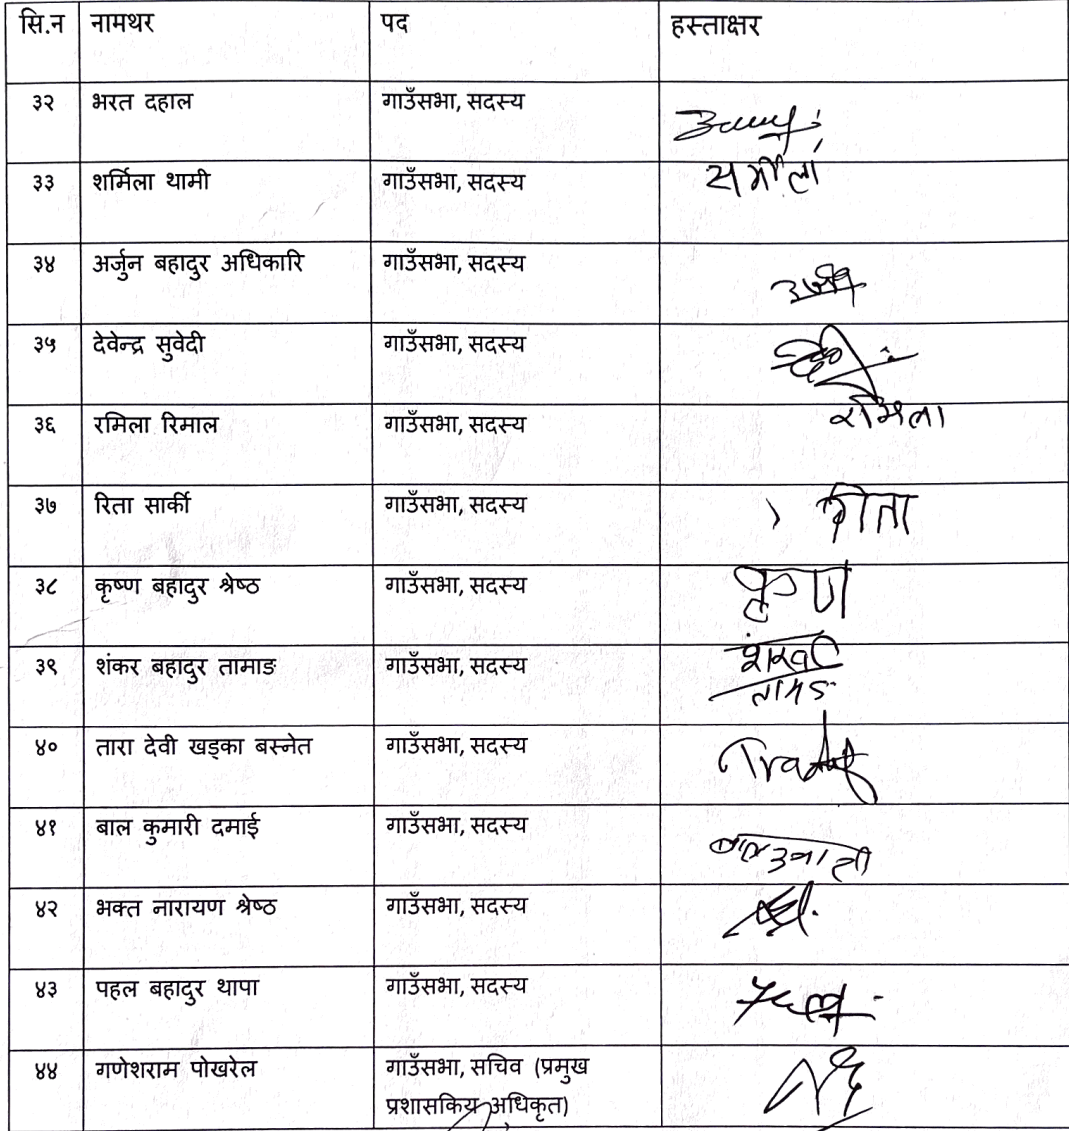 सि.न नामथर पद हस्ताक्षर
३२ भरत दहाल गाउँसभा, सदस्य
३३ शर्मिला थामी गाउँसभा, सदस्य सर्मीला
३४ अर्जुन बहादुर अधिकारि गाउँसभा, सदस्य
३५ देवेन्द्र सुवेदी गाउँसभा, सदस्य
३६ रमिला रिमाल गाउँसभा, सदस्य रमिला
३७ रिता सार्की गाउँसभा, सदस्य रीता
३८ कृष्ण बहादुर श्रेष्ठ गाउँसभा, सदस्य
३९ शंकर बहादुर तामाङ गाउँसभा, सदस्य
४० तारा देवी खड्का बस्नेत गाउँसभा, सदस्य
४१ बाल कुमारी दमाई गाउँसभा, सदस्य
४२ भक्त नारायण श्रेष्ठ गाउँसभा, सदस्य
४३ पहल बहादुर थापा गाउँसभा, सदस्य
४४ गणेशराम पोखरेल गाउँसभा, सचिव (प्रमुख
प्रशासकिय अधिकृत)